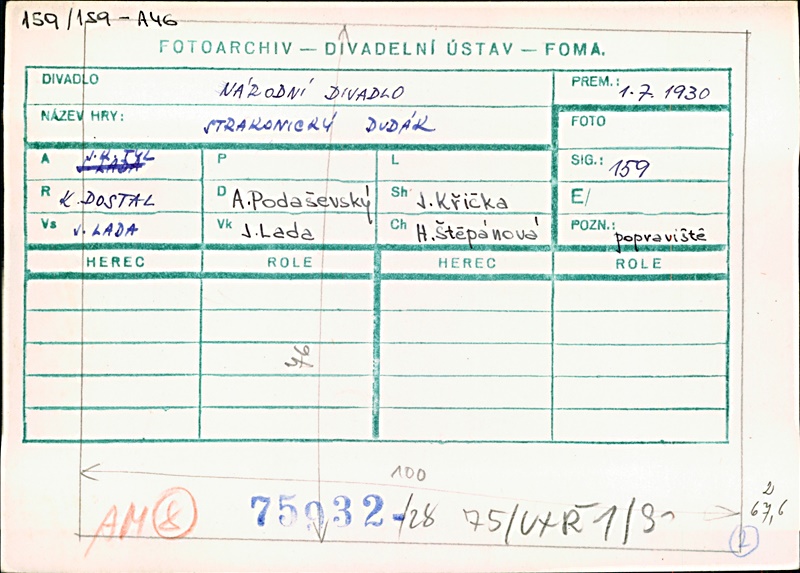 159/159-A46
FOTOARCHIV — DIVADELNÍ ÚSTAV — FOMA.
DIVADLO NÁRODNÍ DIVADLO PREM.: 1.7.1930
NÁZEV HRY: STRAKONICKÝ DUDÁK FOTO
A J.K.TYL P L SIG.: 159
R K.DOSTAL D A.Podaševský Sh J.Křička E/
Vs J.LADA Vk J.Lada Ch H.Štěpánová POZN.: popraviště
HEREC ROLE HEREC ROLE
76
100
AM 8 75932-/28
2
67,6
2